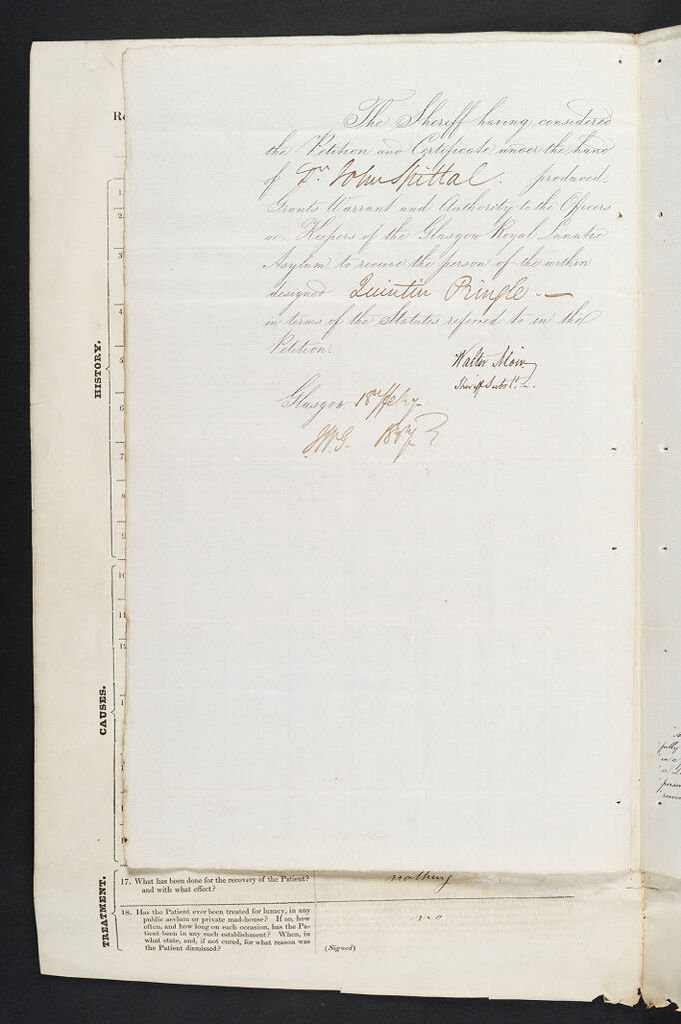 The Sheriff having considered
the Petition and Certificate under the hand
of Dr. John Spittal. produced
Grants Warrant and Authority to the Officers
or Keepers of the Glasgow Royal Lunatic
Asylum to receive the person of the within
designed Quintin Pringle. —
in terms of the Statutes referred to in the
Petition.
Walter Moir
Sheriff Subst.
Glasgow 18th Feby.
HISTORY.
1
2
3
4
5
6
7
8
9
10
11
12
CAUSES.
TREATMENT.
17. What has been done for the recovery of the Patient?
and with what effect?
nothing
18. Has the Patient ever been treated for lunacy, in any
public asylum or private mad-house? If so, how
often, and how long on each occasion, has the Pa-
tient been in any such establishment? When, in
what state, and, if not cured, for what reason was
the Patient dismissed?
no
(Signed)